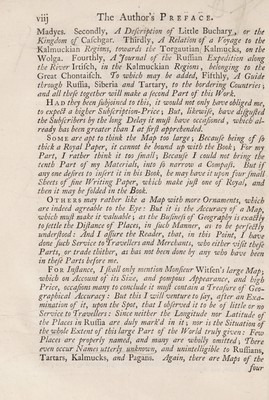 viij The Author's PREFACE.
Madyes. Secondly, A Description of Little Buchary, or the
Kingdom of Caschgar. Thirdly, A Relation of a Voyage to the
Kalmuckian Regions, towards the Torgautian Kalmucks, on the
Wolga. Fourthly, A Journal of the Russian Expedition along
the River Irtisch, in the Kalmuckian Regions, belonging to the
Great Chontaisch. To which may be added, Fifthly, A Guide
through Russia, Siberia and Tartary, to the bordering Countries;
and all these together will make a second Part of this Work.
HAD they been subjoined to this, it would not only have obliged me,
to expect a higher Subscription-Price; But, likewise, have disgusted
the Subscribers by the long Delay it must have occasioned, which al-
ready has been greater than I at first apprehended.
SOME are apt to think the Map too large; Because being of so
thick a Royal Paper, it cannot be bound up with the Book; For my
Part, I rather think it too small; Because I could not bring the
tenth Part of my Materials, into so narrow a Compass. But if
any one desires to insert it in his Book, he may have it upon four small
Sheets of fine Writing Paper, which make just one of Royal, and
then it may be folded in the Book.
OTHERS may rather like a Map with more Ornaments, which
are indeed agreable to the Eye: But it is the Accuracy of a Map,
which must make it valuable; as the Business of Geography is exactly
to settle the Distance of Places, in such Manner, as to be perfectly
understood: And I assure the Reader, that, in this Point, I have
done such Service to Travellers and Merchants, who either visit these
Parts, or trade thither, as has not been done by any who have been
in these Parts before me.
FOR Instance, I shall only mention Monsieur Witsen's large Map;
which on Account of its Size, and pompous Appearance, and high
Price, occasions many to conclude it must contain a Treasure of Geo-
graphical Accuracy: But this I will venture to say, after an Exa-
mination of it, upon the Spot, that I observed it to be of little or no
Service to Travellers: Since neither the Longitude nor Latitude of
the Places in Russia are duly mark'd in it; nor is the Situation of
the whole Extent of this large Part of the World truly given: Few
Places are properly named, and many are wholly omitted; There
even occur Names utterly unknown, and unintelligible to Russians,
Tartars, Kalmucks, and Pagans. Again, there are Maps of the
four